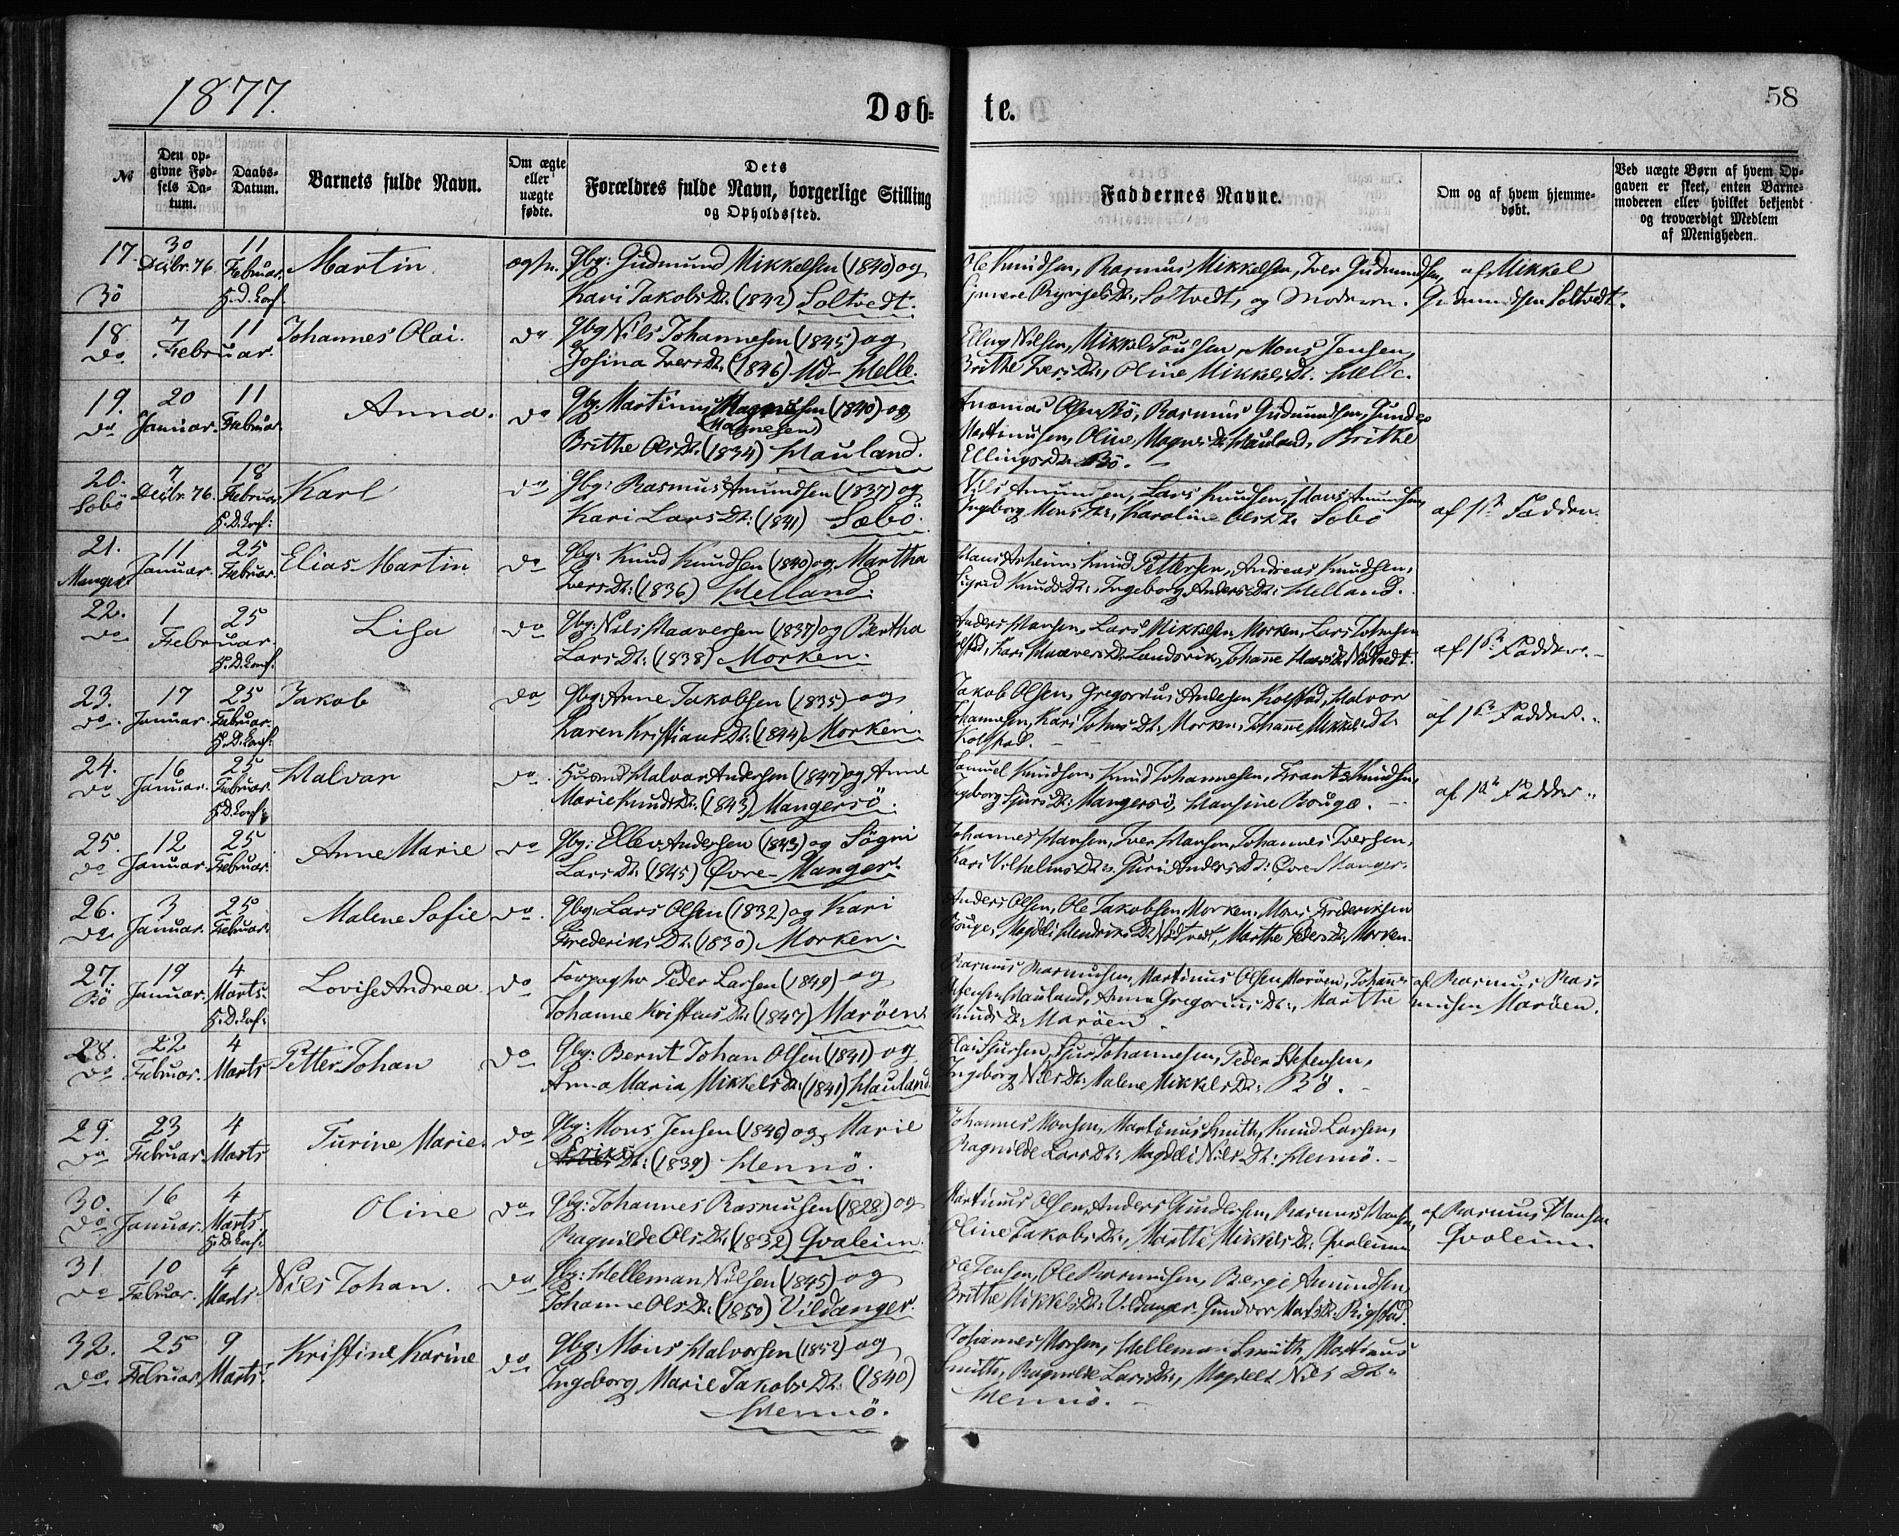 1877.
Døb-
te.
58
№
Den op-
givne Fød-
sels Da-
tum.
Daabs-
Datum.
Barnets fulde Navn.
Om ægte
eller
uægte
fødte.
Dets
Forældres fulde Navn, borgerlige Stilling
og Opholdssted.
Faddernes Navne.
Om og af hvem hjemme-
døbt.
Ved uægte Børn af hvem Op-
gaven er skeet, enten Barne-
moderen eller hvilket bekjendt
og troværdigt Medlem
af Menigheden.
17. 30 Decbr. 76 11 Februar Martin Gbg: Gudmund Mikkelsen (1840) og
Kari Jakobs Dt. (1842) Soltvedt.
Ole Knudsen, Rasmus Mikkelsen, Iver Gudmundsen, af Mikkel
Soltvedt, og Moderen. Gudmundsen Soltvedt.
18. do 7 Februar 11 Johannes Olai. do Gbg Nils Johannesen (1845) og
Josina Ivers Dt. (1846) Ud-Helle.
Elling Nilsen, Mikkel Poulsen, Mons Jensen,
Brithe Ivers Dt., Oline Mikkels Dt. Helle.
19. do 20 Januar. 11 Februar Anna. do Gbg. Martinus Magnusen (1840) og
(Magnesen)
Brithe Ols Dt. (1834) Hauland.
Olsen Bö, Rasmus Gudmundsen,
Martinusen, Oline Magnes Dt. Hauland, Brithe
Ellings Dt. Bö.
20. Sæbö 7 Decbr. 76. 18 Februar Karl do Gbg: Rasmus Amundsen (1837) og
Kari Lars Dt: (1841) Sæbö.
Nils Amundsen, Lars Knudsen, Hans Amundsen,
Ingeborg Mons Dt., Karoline Sæbö af 1ste Fadder.
21. Manger. 11 Januar. 25 Februar. Elias Martin do Gbg: Knud Knudsen (1840) og Martha
Ivers Dt: (1836) Helland.
Knud Pettersen, Andreas Knudsen,
Sigrid Knuds Dt., Ingeborg Anders Dt: Helland.
22. do 1 Februar 25 Lisa do Gbg: Nils Haaversen (1837) og Bertha
Lars Dt: (1838) Morken.
Anders Hansen, Lars Mikkelsen Morken, Lars
Kari Haavers Dt. Landsvik, Johanne af 1ste Fadder.
23. do. 17 Januar. 25 Februar. Jakob do Gbg: Arne Jakobsen (1835) og
Karen Kristians Dt: (1844) Morken.
Jakob Olsen, Gregorius Andersen Kolstad, Halvor
Johannesen, Kari Johns Dt. Morken, Johanne Mikkels Dt. af 1ste Fadder.
Kolstad.
24. do 16 Januar. 25 Februar. Halvar do. Husmd Halvar Andersen (1847) og Anne
Marie Knuds Dt. (1843) Mangersö.
Samuel Knudsen, Knud Johannesen, Frants Knudsen,
Ingeborg Sjurs Dt: Mangersö, Hansine Bouge. af 1ste Fadder.
25. do 12 Januar. 25 Februar. Anne Marie do Gbg: Ellev Andersen (1843) og Sögni
Lars Dt: (1845) Øvre-Manger.
Johannes Hansen, Iver Hansen, Johannes Iversen,
Kari Vilhelms Dt. Guri Anders Dt: Øvre Manger.
26. do 3 Januar. 25 Februar. Malene Sofie do. Gbg. Lars Olsen (1832) og Kari
Frederiks Dt: (1830) Morken.
Anders Olsen, Ole Jakobsen Morken, Mons Frederiksen
Bouge, Magdli Hendriks Dt. Marthe Peders Dt. Morken.
27. Bö 19 Januar. 4 Marts. Lovise Andrea do Forpagter Peder Larsen (1849) og
Johanne Kristens Dt: (1847) Maröen.
Rasmus Rasmusen, Martinus Olsen Maröen, af Rasmus Ras-
Hauland, Anna Gregorius Dt., Marthe musen Maröen.
Knuds Dt. Maröen.
28. do 22 Februar. 4 Marts Petter Johan do Gbg: Bernt Johan Olsen (1841) og
Anna Maria Mikkels Dt. (1841) Hauland.
Olai Sjursen, Sjur Johannesen, Peder
Ingeborg Nils Dt. Malene Mikkels Dt: Bö.
29. do 23 Februar 4 Marts Turine Marie. do Gbg: Mons Jensen (1846) og Marie
Dt: (1839) Hennö.
Johannes Monsen, Martinus Smith, Knud Larsen,
Ragnilde Lars Dt: Magdeli Nils Dt: Hennö.
30. do 16 Januar. 4 Marts Oline do Gbg: Johannes Rasmusen (1828) og
Ragnilde Ols Dt: (1832) Qvaleim.
Martinus Olsen, Anders Gundersen, Rasmus Hansen, af Rasmus Hansen
Oline Jakobs Dt., Marthe Mikkels Dt: Qvaleim Qvaleim.
31. do 10 Februar. 4 Marts. Nils Johan. do Gbg: Helleman Nilsen (1845) og
Johanne Ols Dt: (1850) Vildanger.
Jensen, Ole Rasmusen, Amundsen
Brithe Mikkels Dt: Vildanger Rigstad.
32. do 25 Februar. 9 Marts. Kristine Karine do Gbg: Mons Halvorsen (1852) og
Ingeborg Marie Jakobs Dt. (1840)
Hennö.
Johannes Monsen, Helleman Smith, Martinus
Smith, Ragnilde Lars Dt., Magdeli Nils Dt.
Hennö.